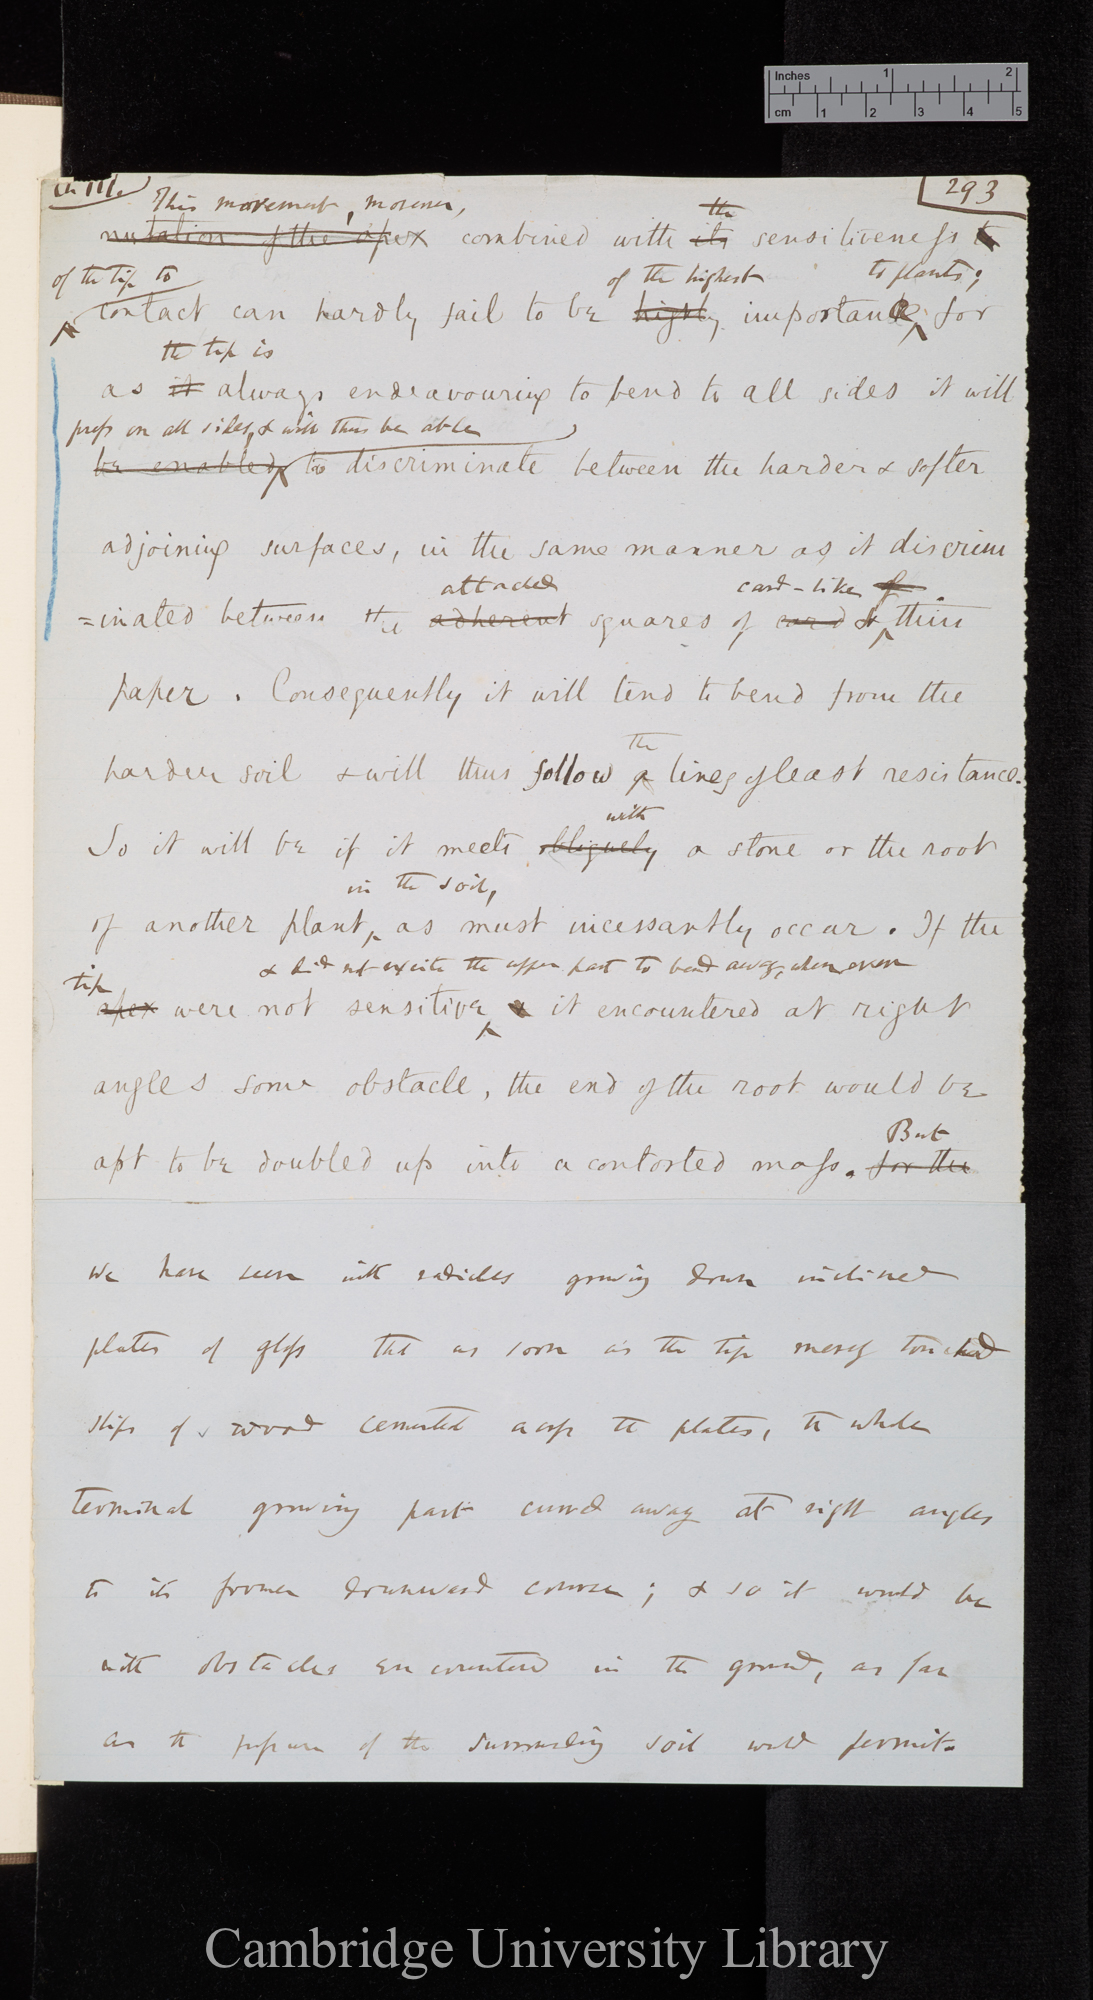 Ch III. 293
This movement, moreover, the
nutation of the apex combined with its sensitiveness to
of the tip to of the highest to plants;
contact can hardly fail to be highly importance for
the tip is
as it always endeavouring to bend to all sides it will
press on all sides, & will thus be able
be enabled to discriminate between the harder & softer
adjoining surfaces, in the same manner as it discrim
=inated between the adherent squares of card & thin
attached card-like
paper. Consequently it will tend to bend from the
the
harder soil & will thus follow a lines of least resistance.
with
So it will be if it meets obliquely a stone or the root
in the soil,
of another plant, as must incessantly occur. If the
& did not excite the upper part to bend away, when even
tip
apex were not sensitive & it encountered at right
angles some obstacle, the end of the root would be
But
apt to be doubled up into a contorted mass. for the
we have seen with radicles growing down inclined
plates of glass that as soon as the tip merely touched
slips of wood cemented across the plates, the whole
terminal growing part curved away at right angles
to its former downward course; & so it would be
with obstacles encountered in the ground, as far
as the pressure of the surrounding soil would permit.
Inches 1 2
cm 1 2 3 4 5
Cambridge University Library